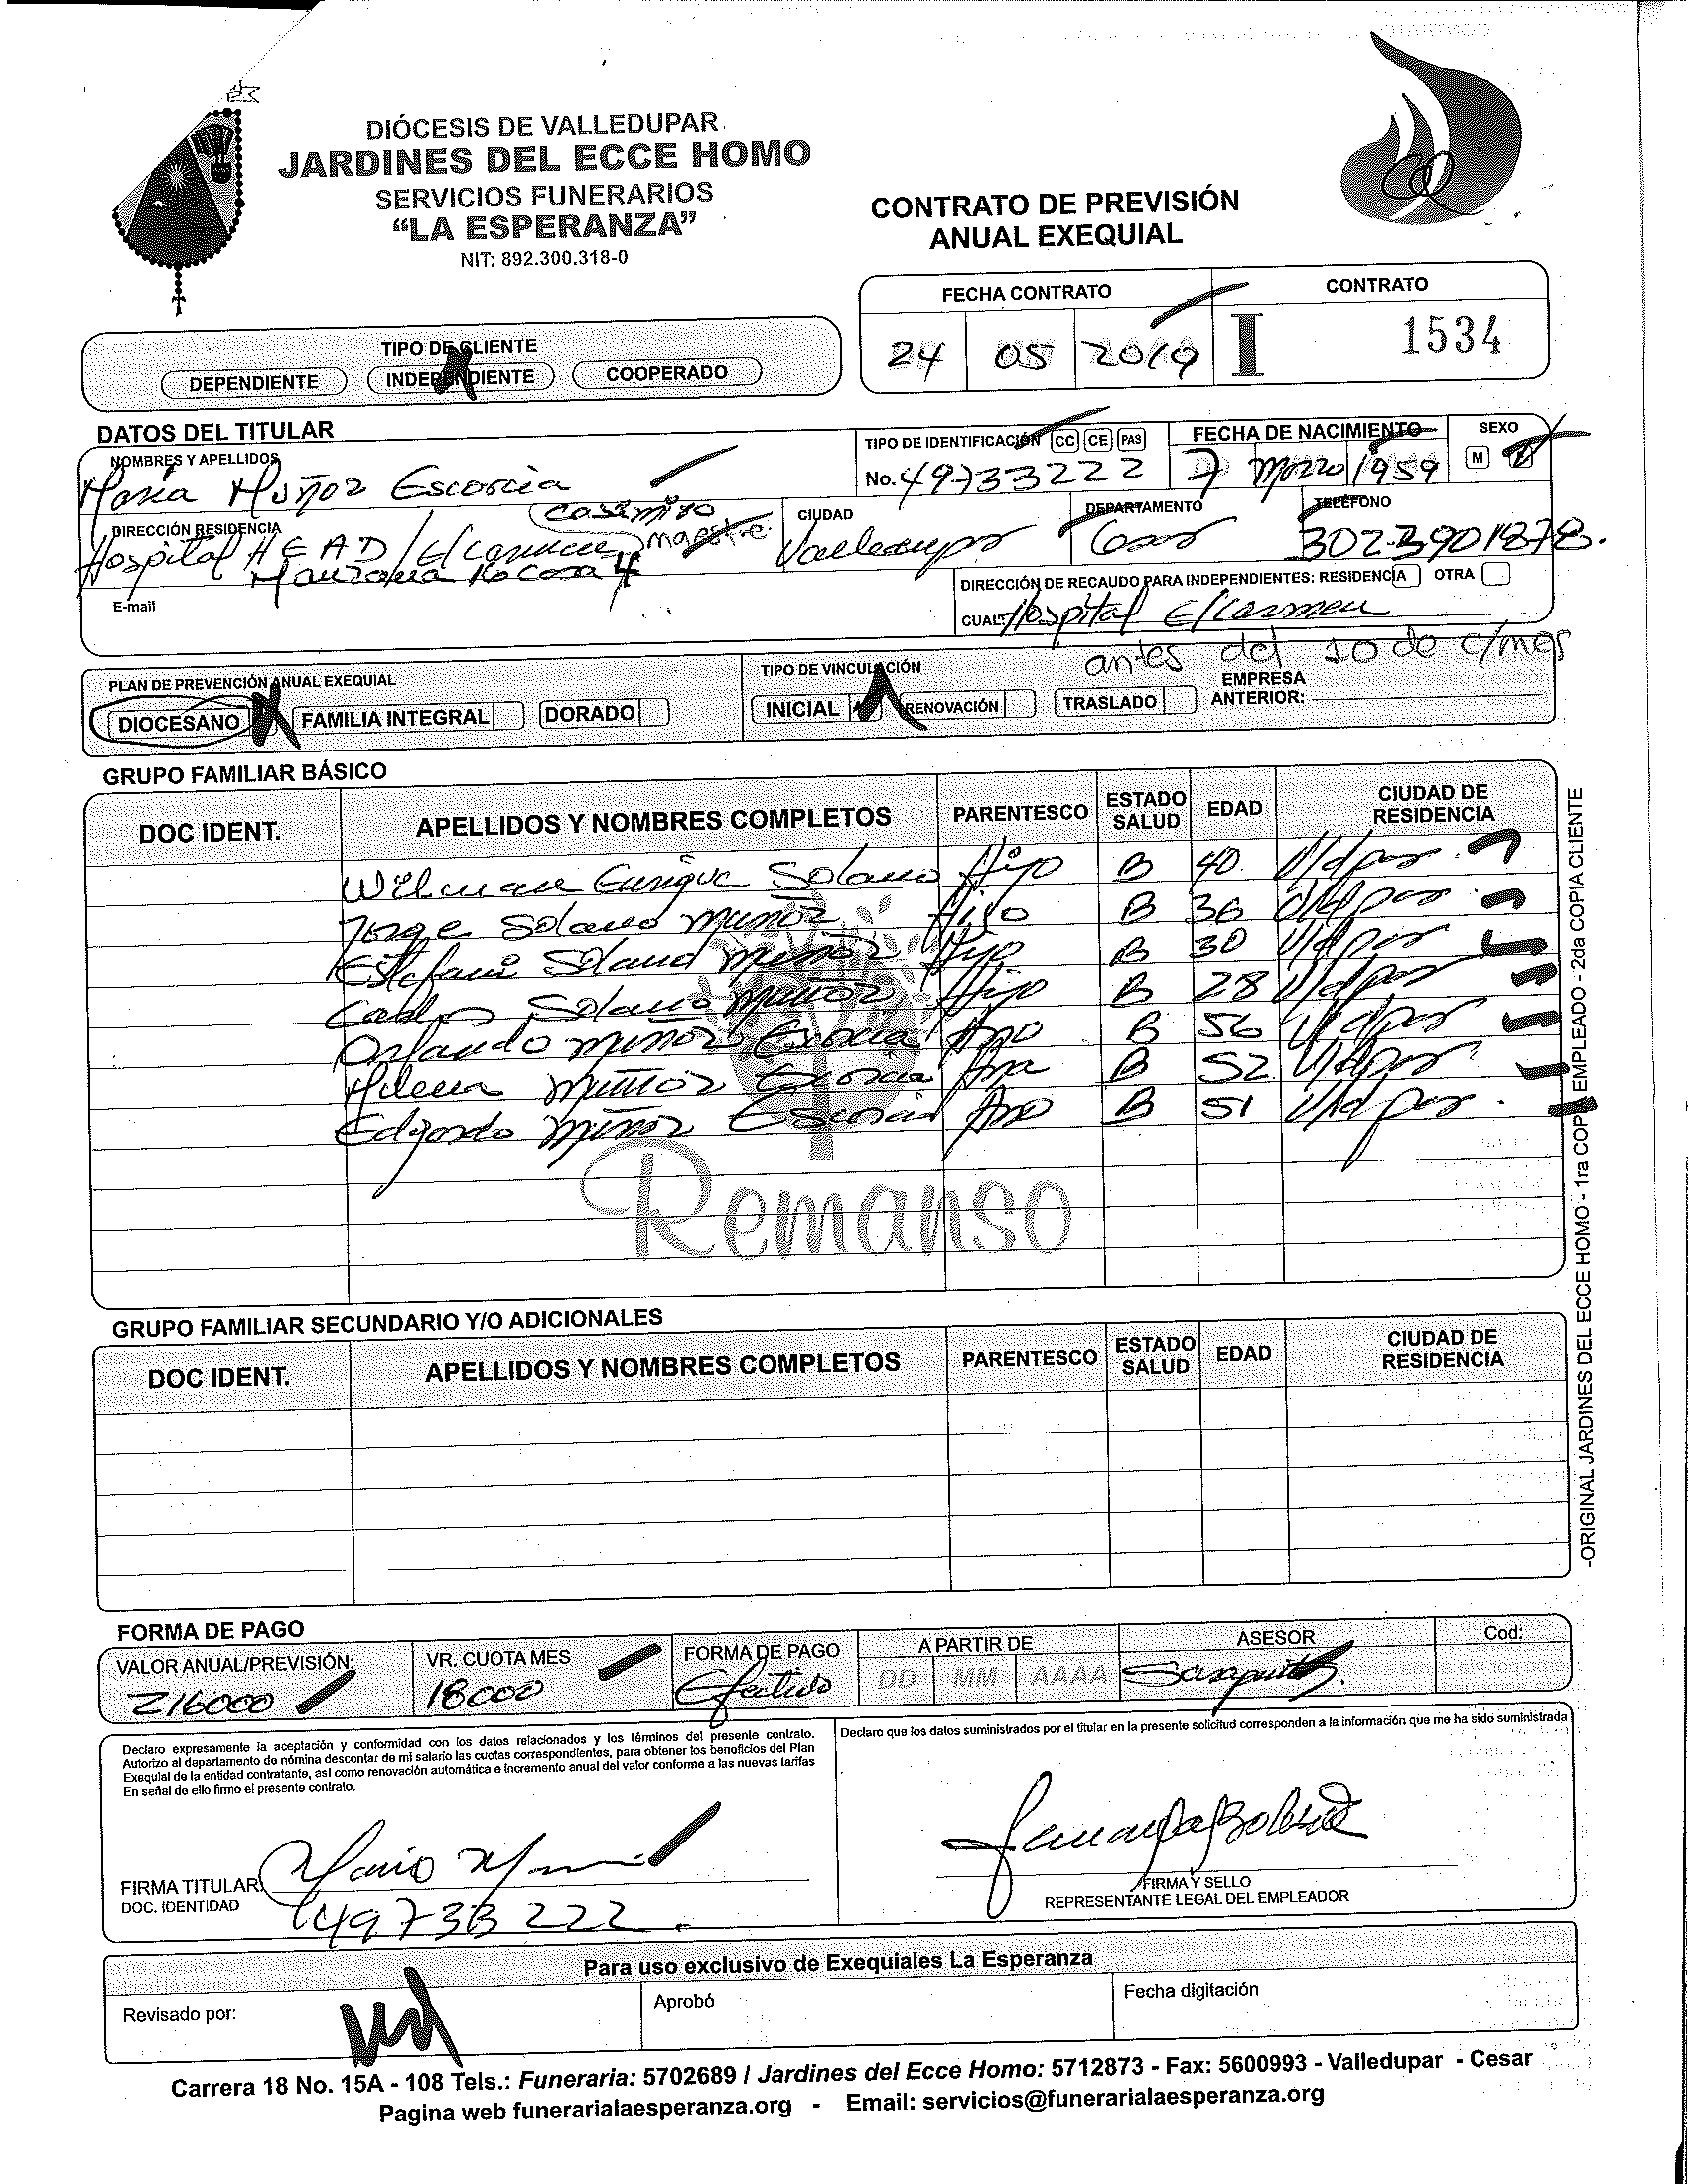 DIÓCESIS DE VALLEDUPAR
JARDINES DEL ECCE HOMO
SERVICIOS FUNERARIOS
“LA ESPERANZA”
NIT: 892.300.318-0
CONTRATO DE PREVISIÓN
ANUAL EXEQUIAL
FECHA CONTRATO CONTRATO
24 05 2019 I 1534
TIPO DE CLIENTE
DEPENDIENTE INDEPENDIENTE COOPERADO
DATOS DEL TITULAR
NOMBRES Y APELLIDOS TIPO DE IDENTIFICACIÓN CC CE PAS FECHA DE NACIMIENTO SEXO
María Muñoz Escorcia No. 49733222 7 Marzo 1959 M
DIRECCIÓN RESIDENCIA casimiro maestre CIUDAD DEPARTAMENTO TELÉFONO
Hospital Valledupar Cesar
Manzana casa 4
E-mail DIRECCIÓN DE RECAUDO PARA INDEPENDIENTES: RESIDENCIA OTRA
CUAL: Hospital El Carmen
antes del 10 de c/mes
PLAN DE PREVENCIÓN ANUAL EXEQUIAL TIPO DE VINCULACIÓN EMPRESA
DIOCESANO FAMILIA INTEGRAL DORADO INICIAL RENOVACIÓN TRASLADO ANTERIOR:
GRUPO FAMILIAR BÁSICO
DOC IDENT. APELLIDOS Y NOMBRES COMPLETOS PARENTESCO ESTADO SALUD EDAD CIUDAD DE RESIDENCIA
Solano Hijo B 40 V/dpar
Jorge Solano Muñoz Hijo B 36 V/dpar
Solano Muñoz Hijo B 30 V/dpar
Solano Muñoz Hijo B 28 V/dpar
Orlando Muñoz Escorcia B 56 V/dpar
Milena Muñoz Escorcia B 52 V/dpar
Edgardo Muñoz Escorcia B 51 V/dpar
Remanso
GRUPO FAMILIAR SECUNDARIO Y/O ADICIONALES
DOC IDENT. APELLIDOS Y NOMBRES COMPLETOS PARENTESCO ESTADO SALUD EDAD CIUDAD DE RESIDENCIA
-ORIGINAL JARDINES DEL ECCE HOMO - 1ra COPIA EMPLEADO - 2da COPIA CLIENTE
FORMA DE PAGO
VALOR ANUAL/PREVISIÓN: VR. CUOTA MES FORMA DE PAGO A PARTIR DE ASESOR Cod:
216000 18000 Efectivo DD MM AAAA
Declaro expresamente la aceptación y conformidad con los datos relacionados y los términos del presente contrato.
Autorizo al departamento de nómina descontar de mi salario las cuotas correspondientes, para obtener los beneficios del Plan
Exequial de la entidad contratante, así como renovación automática e incremento anual del valor conforme a las nuevas tarifas
En señal de ello firmo el presente contrato.
Declaro que los datos suministrados por el titular en la presente solicitud corresponden a la información que me ha sido suministrada
FIRMA TITULAR:
DOC. IDENTIDAD 49733222
FIRMA Y SELLO
REPRESENTANTE LEGAL DEL EMPLEADOR
Para uso exclusivo de Exequiales La Esperanza
Revisado por: Aprobó Fecha digitación
Carrera 18 No. 15A - 108 Tels.: Funeraria: 5702689 / Jardines del Ecce Homo: 5712873 - Fax: 5600993 - Valledupar - Cesar
Pagina web funerarialaesperanza.org - Email: servicios@funerarialaesperanza.org